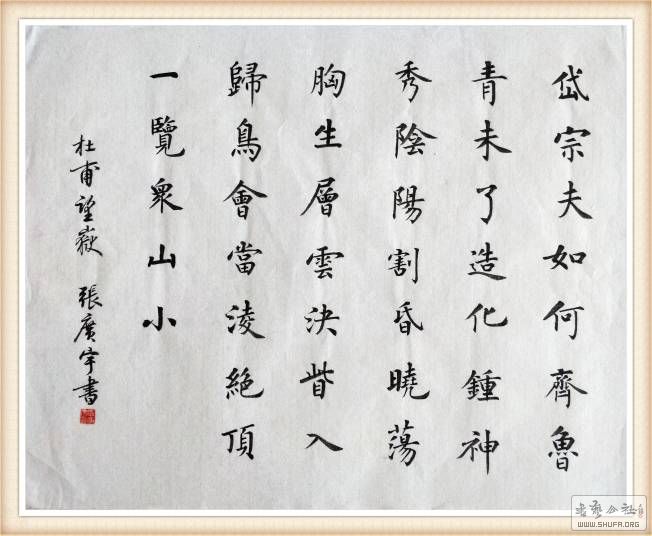 岱宗夫如何齊魯
青未了造化鍾神
秀陰陽割昏曉蕩
胸生層雲決眥入
歸鳥會當淩絶頂
一覽衆山小
杜甫望嶽 張廣宇書
書藝公社
WWW.SHUFA.ORG